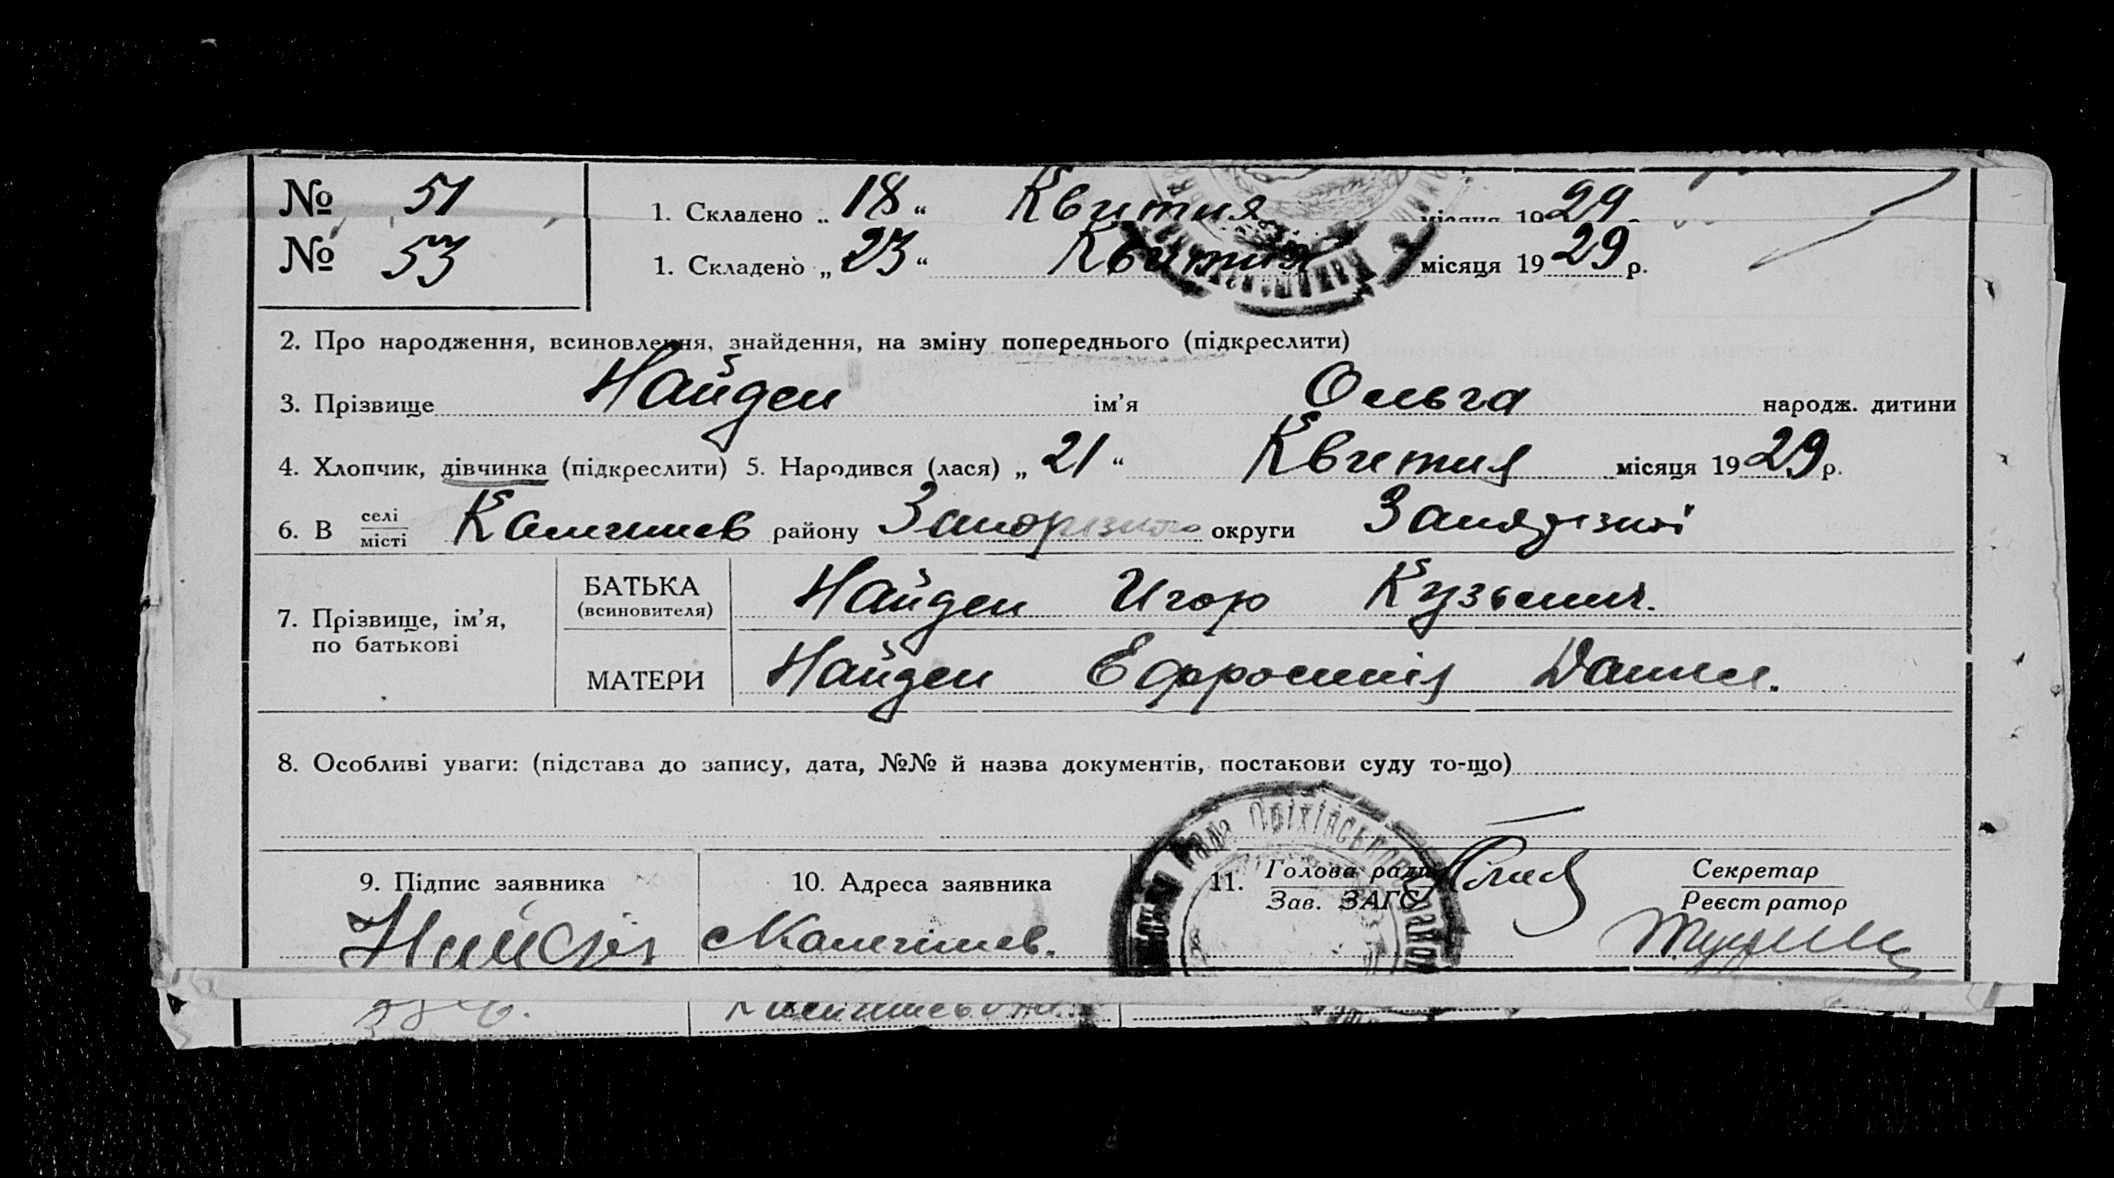 № 51 1. Складено „ 18 “ Квитня місяця 1929
№ 53 1. Складено „ 23 “ Квитня місяця 1929 р.
2. Про народження, всиновлення, знайдення, на зміну попереднього (підкреслити)
3. Прізвище Найден ім’я Ольга народж. дитини
4. Хлопчик, дівчинка (підкреслити) 5. Народився (лася) „ 21 “ Квитня місяця 1929 р.
6. В селі місті Камишев району округи
7. Прізвище, ім’я, по батькові
БАТЬКА (всиновителя) Найден Игор Кузьмич.
МАТЕРИ Найден Ефросинія Данил.
8. Особливі уваги: (підстава до запису, дата, №№ й назва документів, постанови суду то-що)
9. Підпис заявника 10. Адреса заявника 11. Голова ради Зав. ЗАГС Секретар Реєстратор
Камишев.
Рада Оріхівського